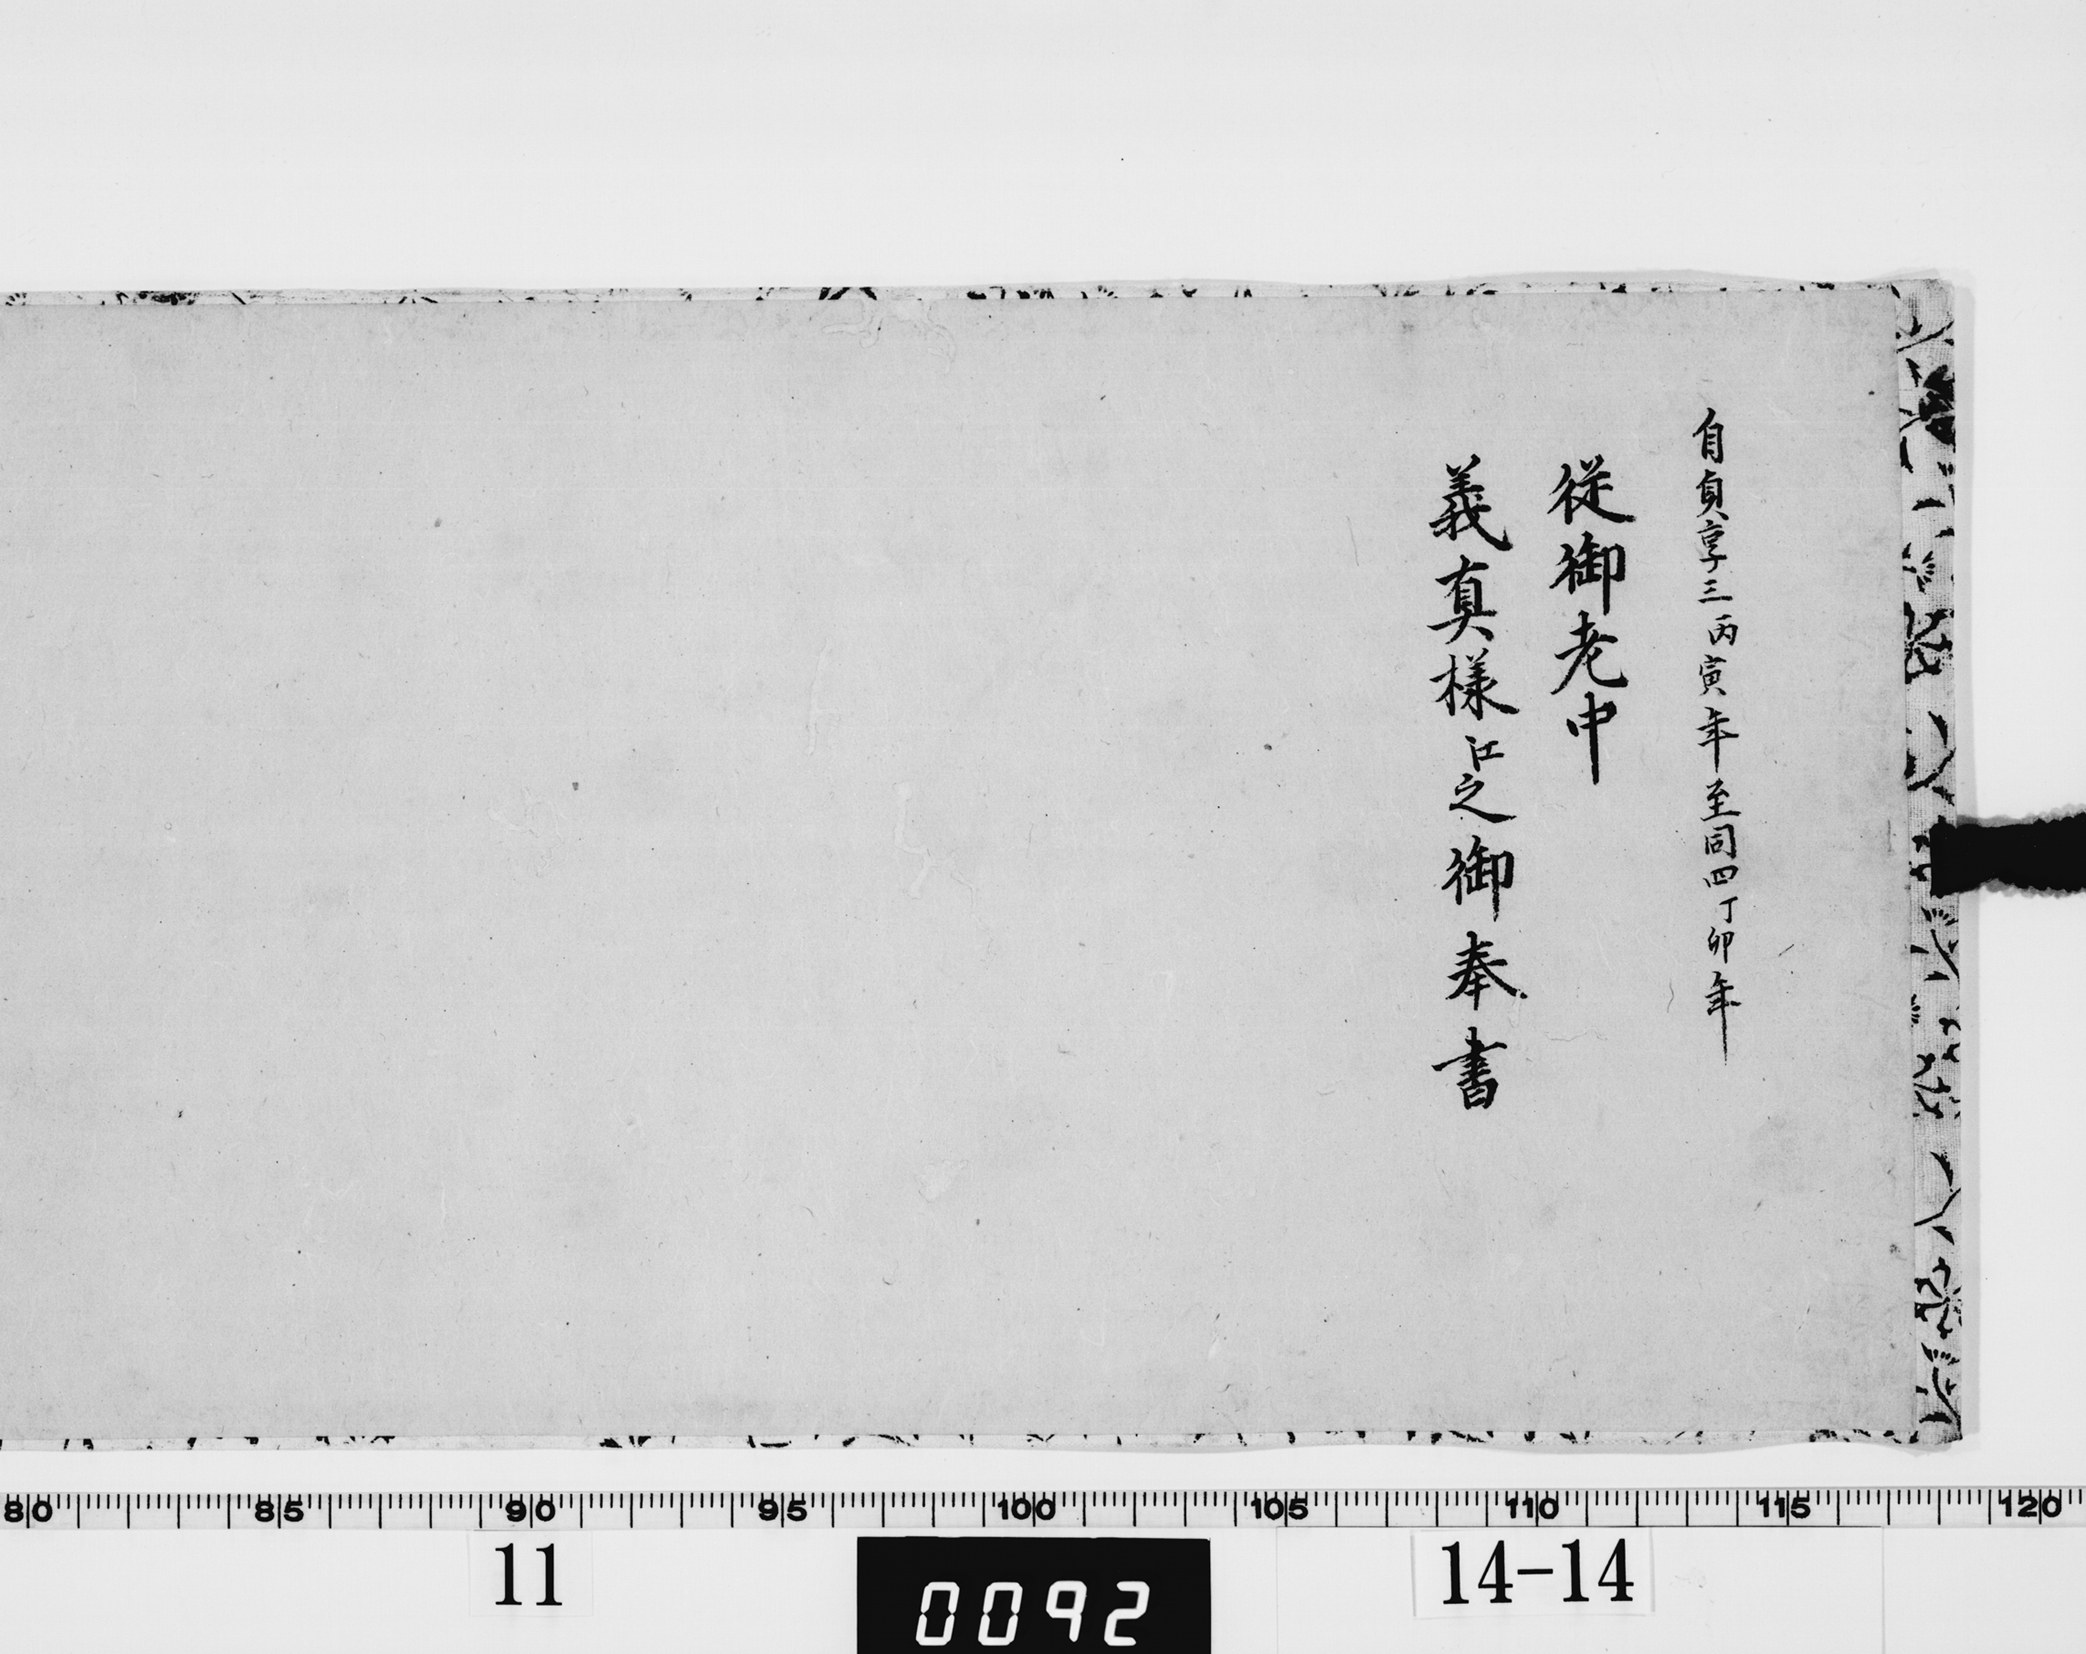 自貞享三丙寅年至同四丁卯年
従御老中
義真様江之御奉書
80 85 90 95 100 105 110 115 120
11
0092
14-14